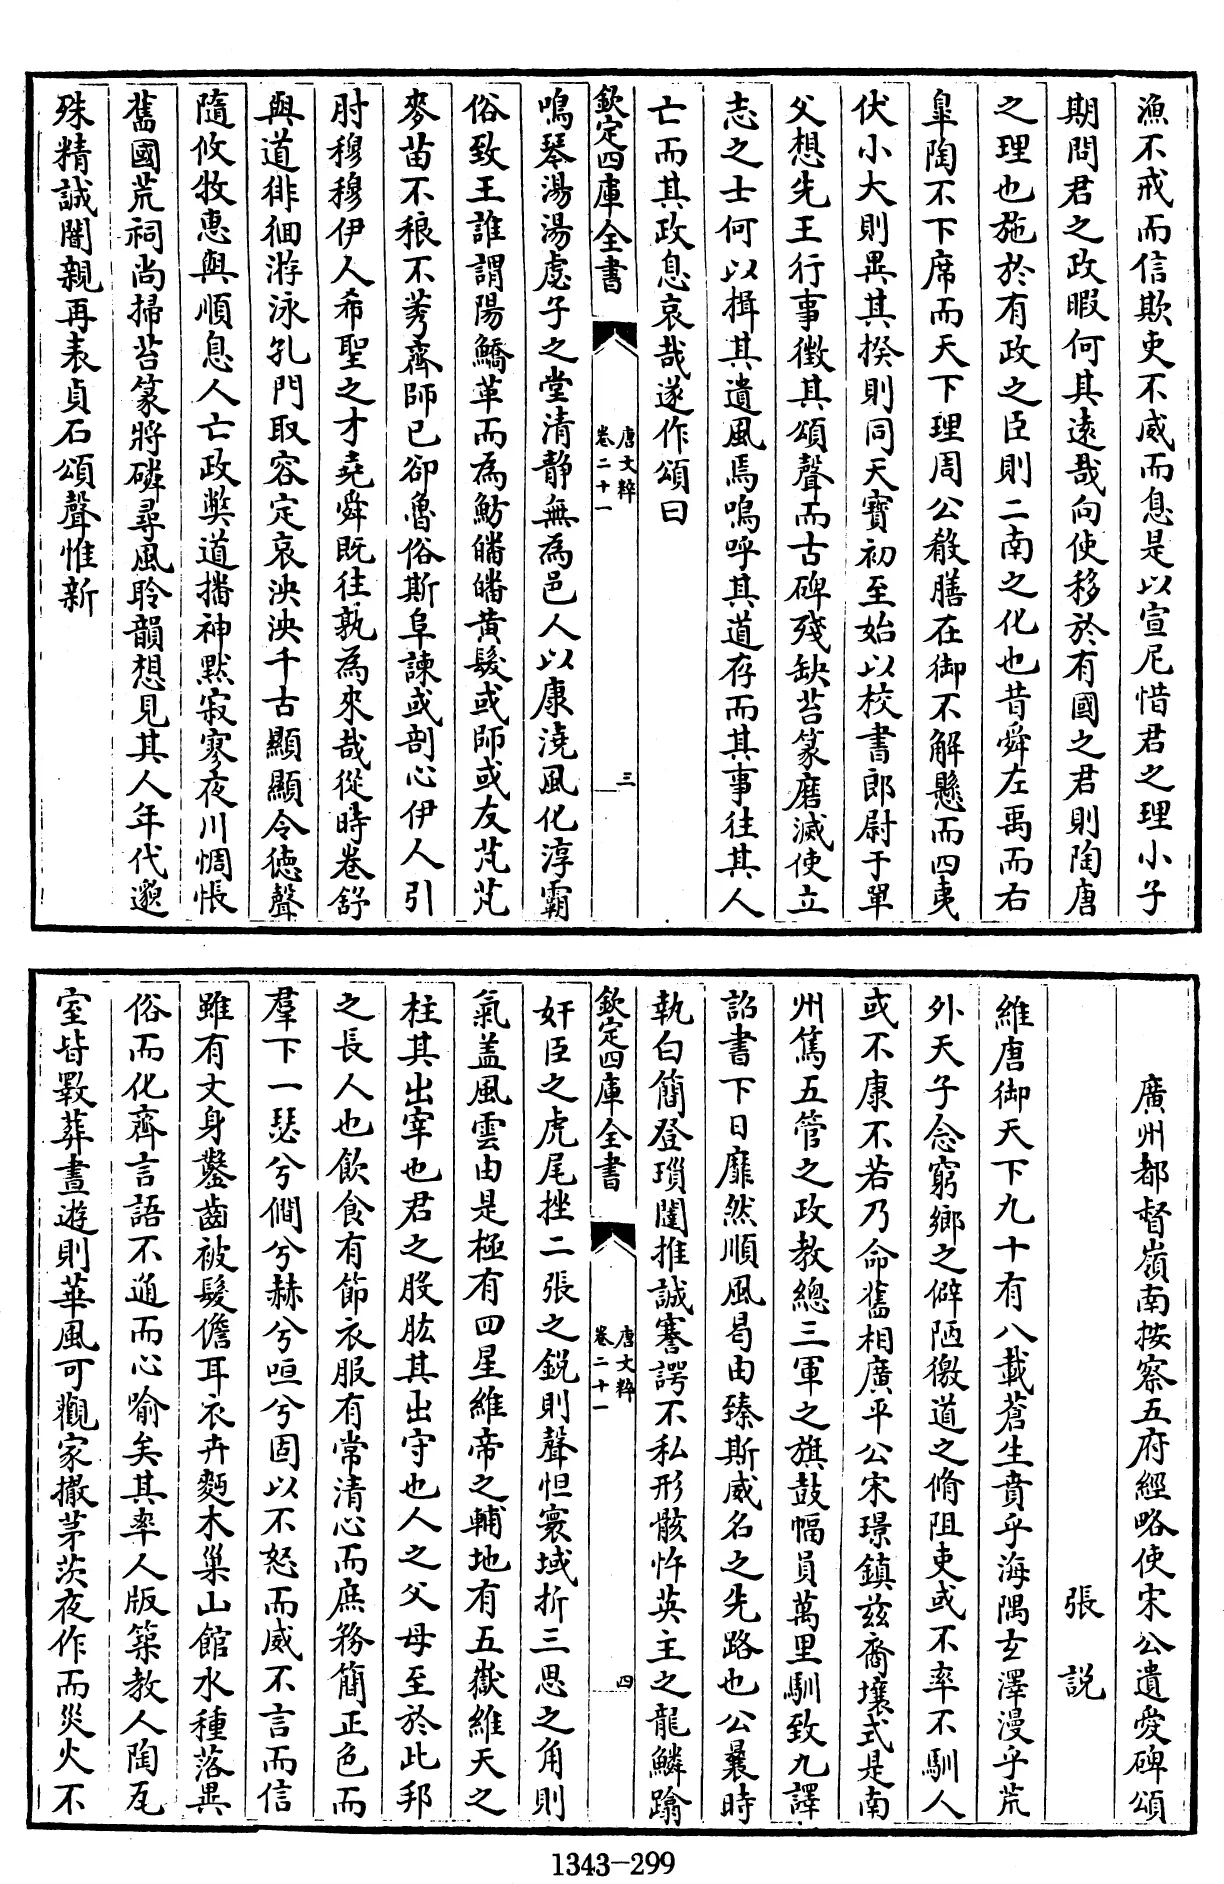 漁不戒而信欺吏不威而息是以宣尼惜君之理小子
期問君之政暇何其遠哉向使移於有國之君則陶唐
之理也施於有政之臣則二南之化也昔舜左禹而右
臯陶不下席而天下理周公殽膳在御不解懸而四夷
伏小大則異其揆則同天寶初至始以校書郎尉于單
父想先王行事徵其頌聲而古碑殘缺苔篆磨滅使立
志之士何以揖其遺風焉嗚呼其道存而其事往其人
亡而其政息哀哉遂作頌曰
欽定四庫全書
唐文粹
卷二十一
三
鳴琴湯湯虙子之堂清靜無為邑人以康澆風化淳霸
俗致王誰謂陽鱎革而為魴皤皤黄髮或師或友芃芃
麥苗不稂不莠齊師已卻魯俗斯阜諫或剖心伊人引
肘穆穆伊人希聖之才堯舜既往孰為來哉從時卷舒
與道徘徊游泳孔門取容定哀泱泱千古顯顯令徳聲
隨攸牧惠與順息人亡政𡚁道播神黙寂寥夜川惆悵
舊國荒祠尚掃苔篆將磷尋風聆韻想見其人年代邈
殊精誠闇親再表貞石頌聲惟新
廣州都督嶺南按察五府經略使宋公遺愛碑頌
張説
維唐御天下九十有八載蒼生賁乎海隅玄澤漫乎荒
外天子念窮鄉之僻陋徼道之脩阻吏或不率不馴人
或不康不若乃命舊相廣平公宋璟鎮兹裔壤式是南
州篤五管之政教總三軍之旗鼓幅員萬里馴致九譯
詔書下日靡然順風曷由臻斯威名之先路也公曩時
執白簡登瑣闥推誠謇諤不私形骸忤英主之龍鱗蹹
欽定四庫全書
唐文粹
卷二十一
四
奸臣之虎尾挫二張之鋭則聲怛寰域折三思之角則
氣盖風雲由是極有四星維帝之輔地有五嶽維天之
柱其出宰也君之股肱其出守也人之父母至於此邦
之長人也飲食有節衣服有常清心而庶務簡正色而
羣下一瑟兮僩兮赫兮咺兮固以不怒而威不言而信
雖有文身鑿齒被髮儋耳衣卉麪木巢山館水種落異
俗而化齊言語不通而心喻矣其率人版築教人陶瓦
室皆斁葬晝遊則華風可觀家撤茅茨夜作而災火不
1343-299